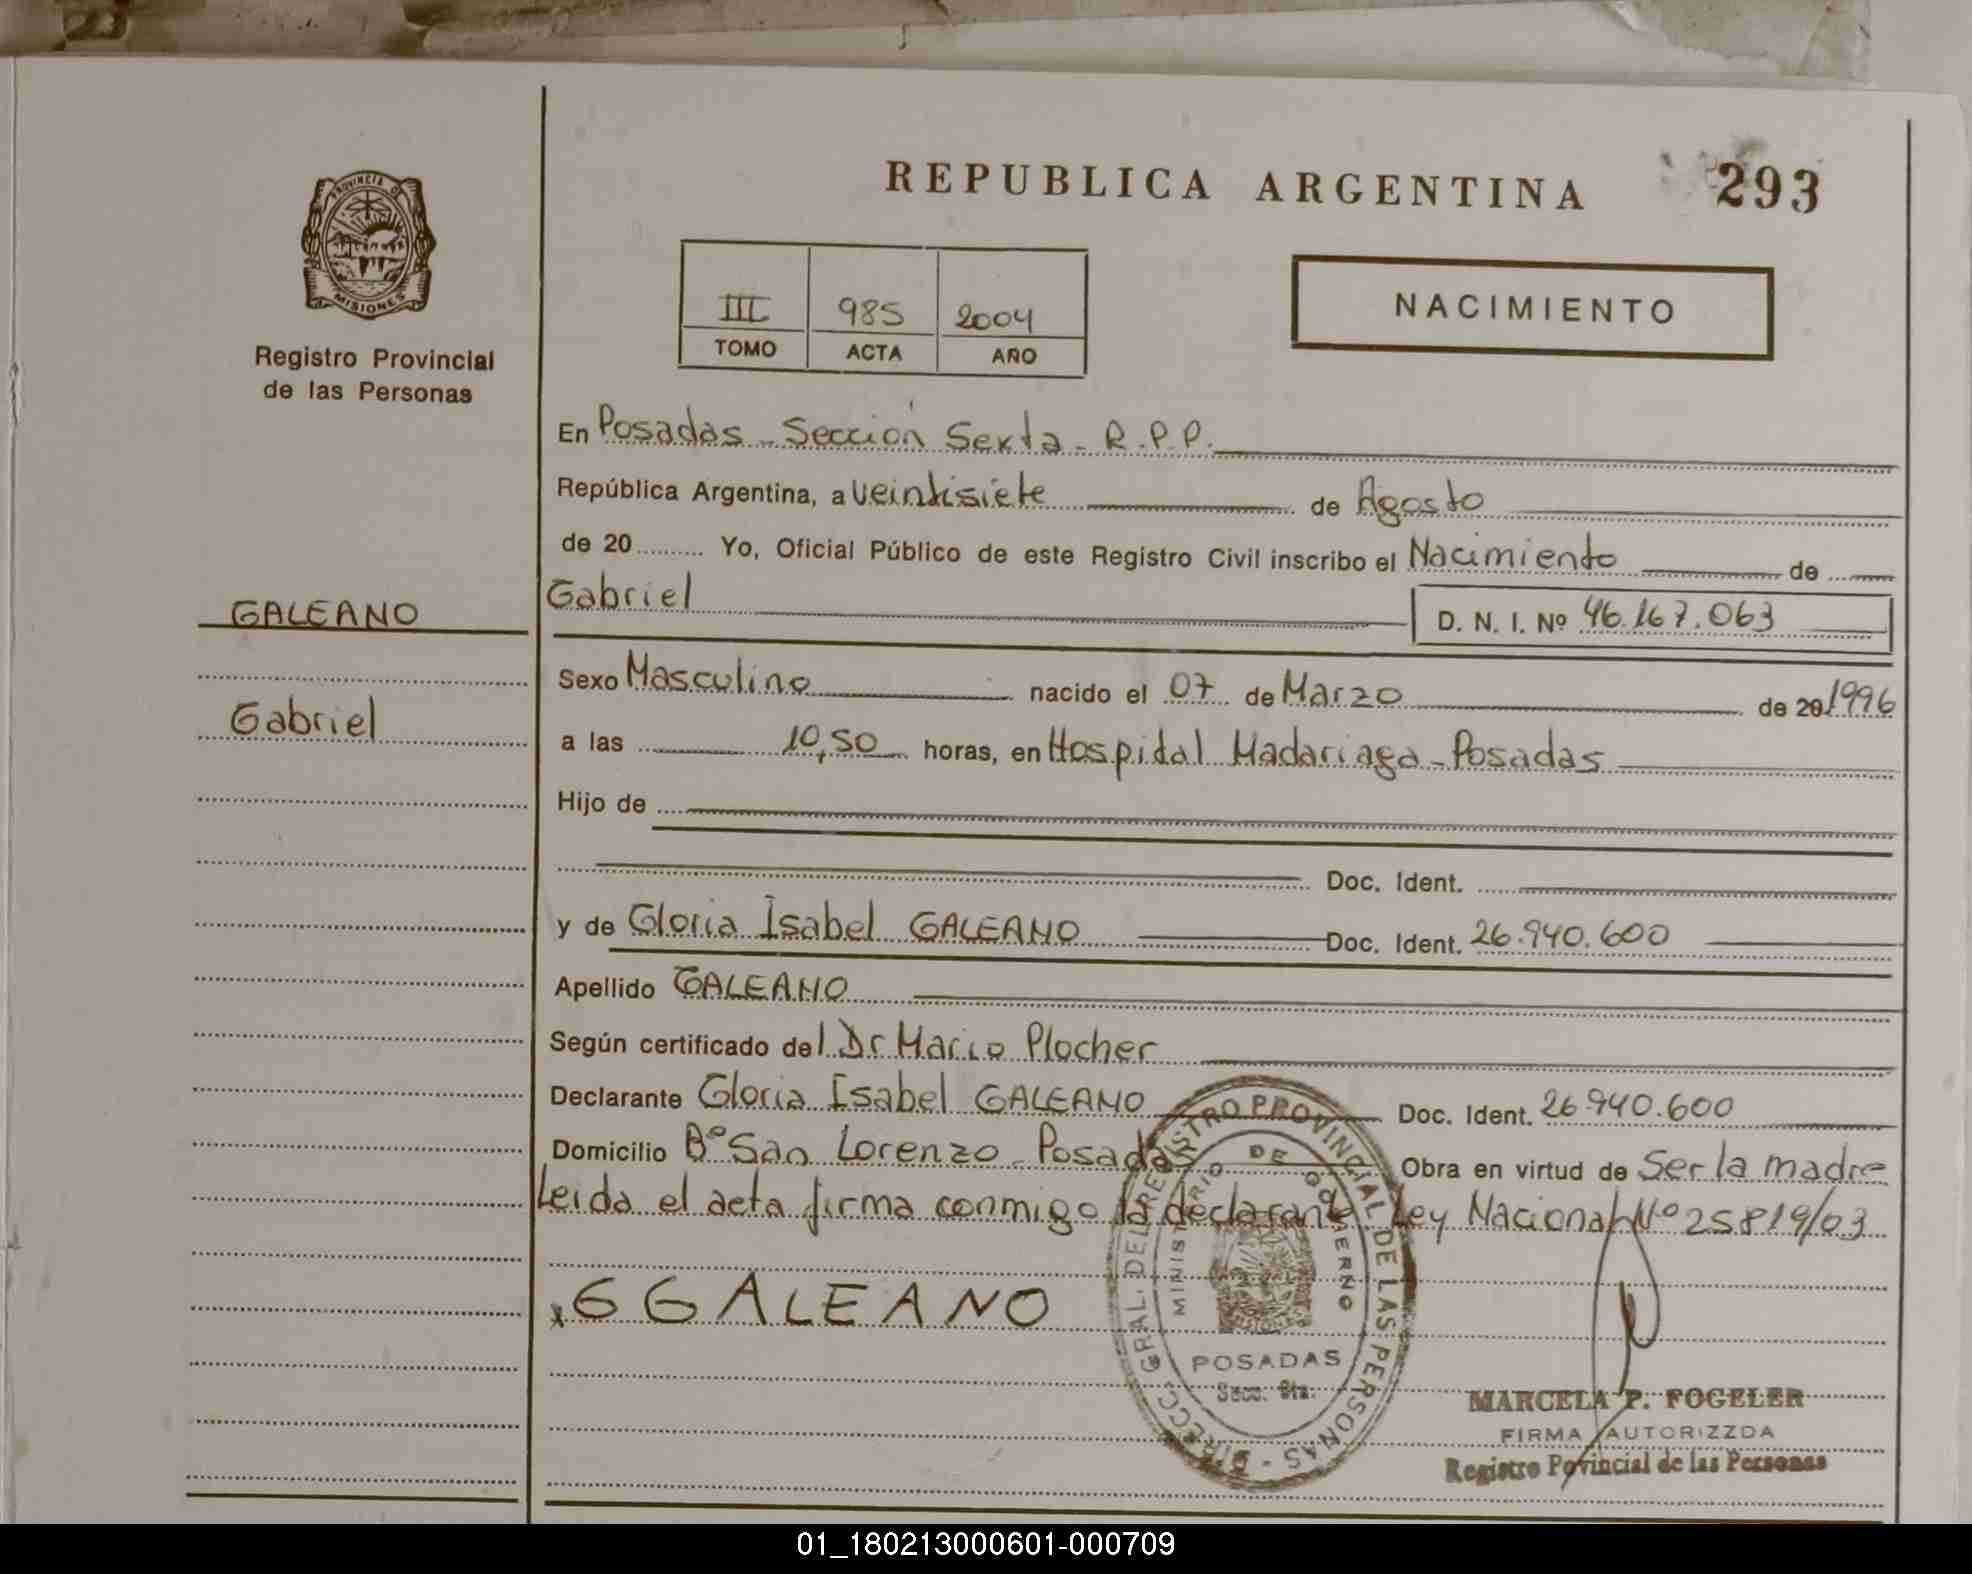 REPUBLICA ARGENTINA 293
PROVINCIA DE
MISIONES
Registro Provincial
de las Personas
III 985 2004
TOMO ACTA AÑO
NACIMIENTO
En Posadas - Sección Sexta - R.P.P.
República Argentina, a veintisiete de Agosto
de 20 Yo, Oficial Público de este Registro Civil inscribo el Nacimiento de
GALEANO
Gabriel
Gabriel D. N. I. Nº 46.167.063
Sexo Masculino nacido el 07 de Marzo de 20 1996
a las 10,50 horas, en Hospidal Madariaga - Posadas
Hijo de
Doc. Ident.
y de Gloria Isabel GALEANO Doc. Ident. 26.940.600
Apellido GALEANO
Según certificado del Dr Mario Plocher
Declarante Gloria Isabel GALEANO Doc. Ident. 26.940.600
Domicilio Bº San Lorenzo - Posadas Obra en virtud de Ser la madre
Leida el acta firma conmigo la declarante. Ley Nacional Nº 25819/03
x G GALEANO
DIRECC. GRAL. DEL REGISTRO PROVINCIAL DE LAS PERSONAS -
MINISTERIO DE GOBIERNO
POSADAS
Secc. 6ta.
MARCELA P. FOGELER
FIRMA AUTORIZZDA
Registro Povincial de las Personas
01_180213000601-000709